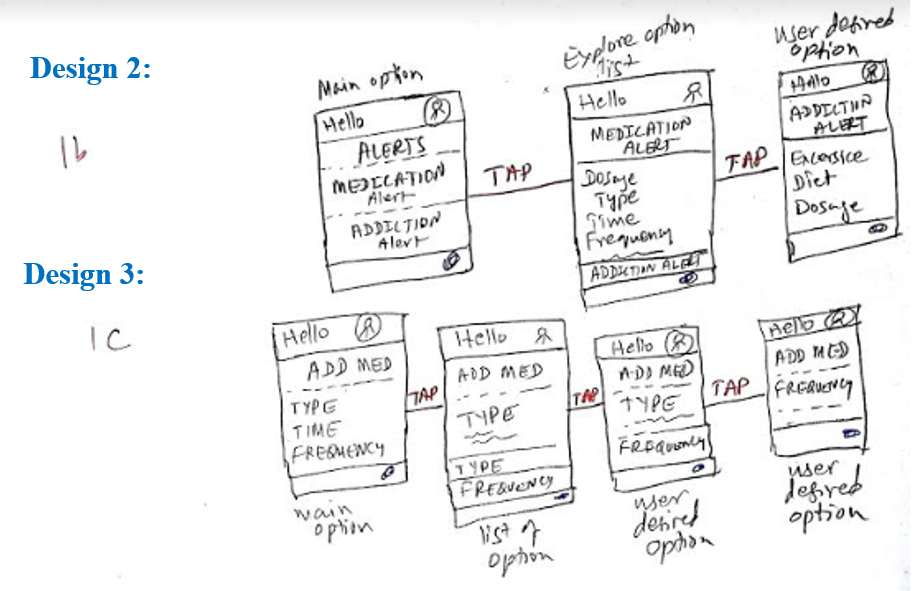 Design 2:
1b
Main option
Hello
ALERTS
MEDICATION
Alert
ADDICTION
Alert
TAP
Explore option
list
Hello
MEDICATION
ALERT
Dosage
Type
Time
Frequency
ADDICTION ALERT
TAP
User desired
option
Hello
ADDICTION
ALERT
Excersice
Diet
Dosage
Design 3:
1C
Hello
ADD MED
TYPE
TIME
FREQUENCY
main
option
TAP
Hello
ADD MED
TYPE
TYPE
FREQUENCY
list of
option
TAP
Hello
ADD MED
TYPE
FREQUENCY
user
desired
option
TAP
Hello
ADD MED
FREQUENCY
user
desired
option